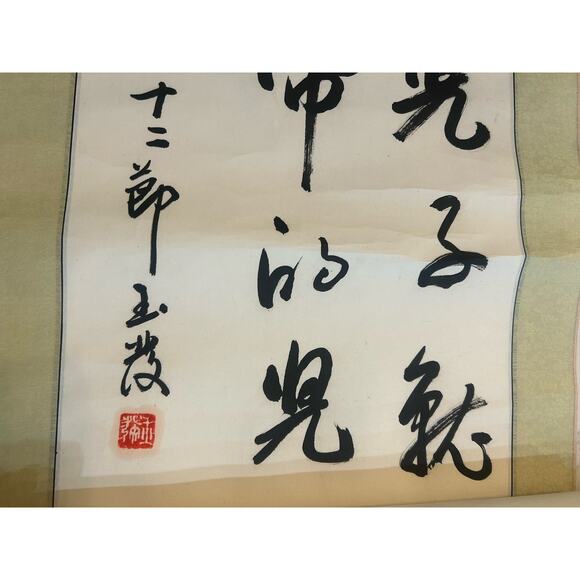 兒子就
帝的兒
十二節 玉